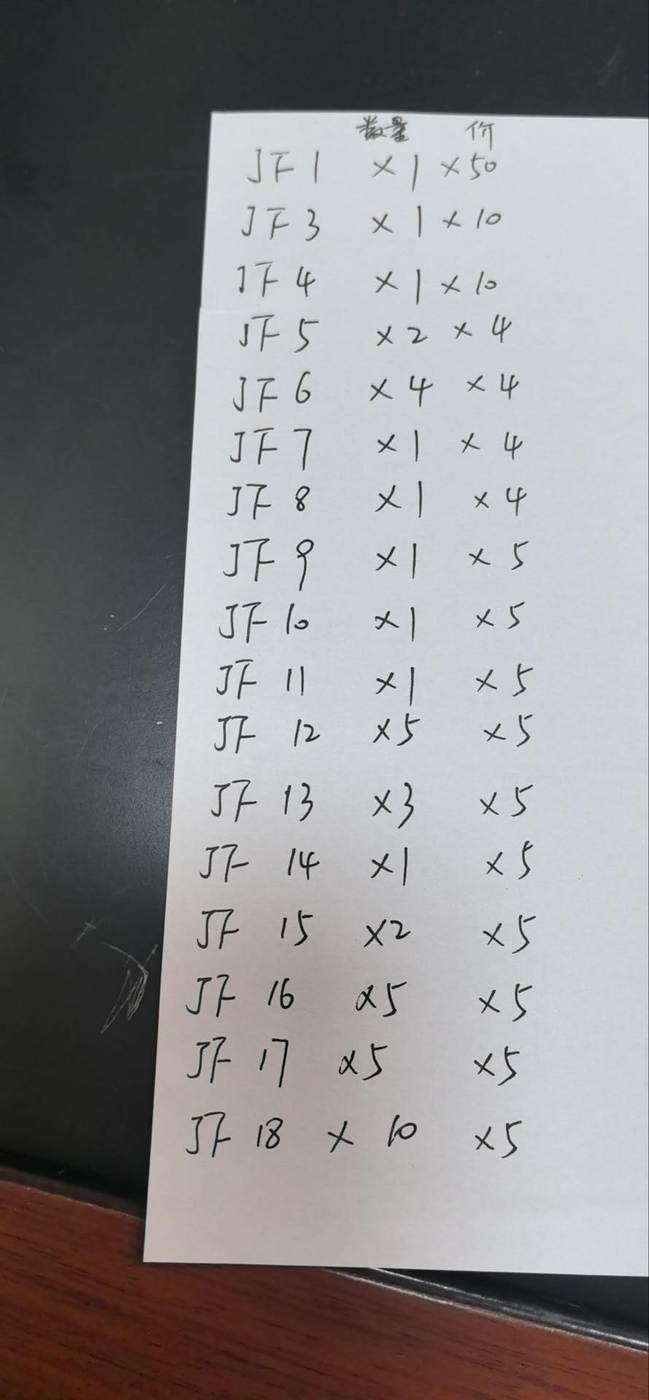 数量 价
JF 1 ×1 ×50
JF 3 ×1 ×10
JF 4 ×1 ×10
JF 5 ×2 ×4
JF 6 ×4 ×4
JF 7 ×1 ×4
JF 8 ×1 ×4
JF 9 ×1 ×5
JF 10 ×1 ×5
JF 11 ×1 ×5
JF 12 ×5 ×5
JF 13 ×3 ×5
JF 14 ×1 ×5
JF 15 ×2 ×5
JF 16 ×5 ×5
JF 17 ×5 ×5
JF 18 × 10 ×5